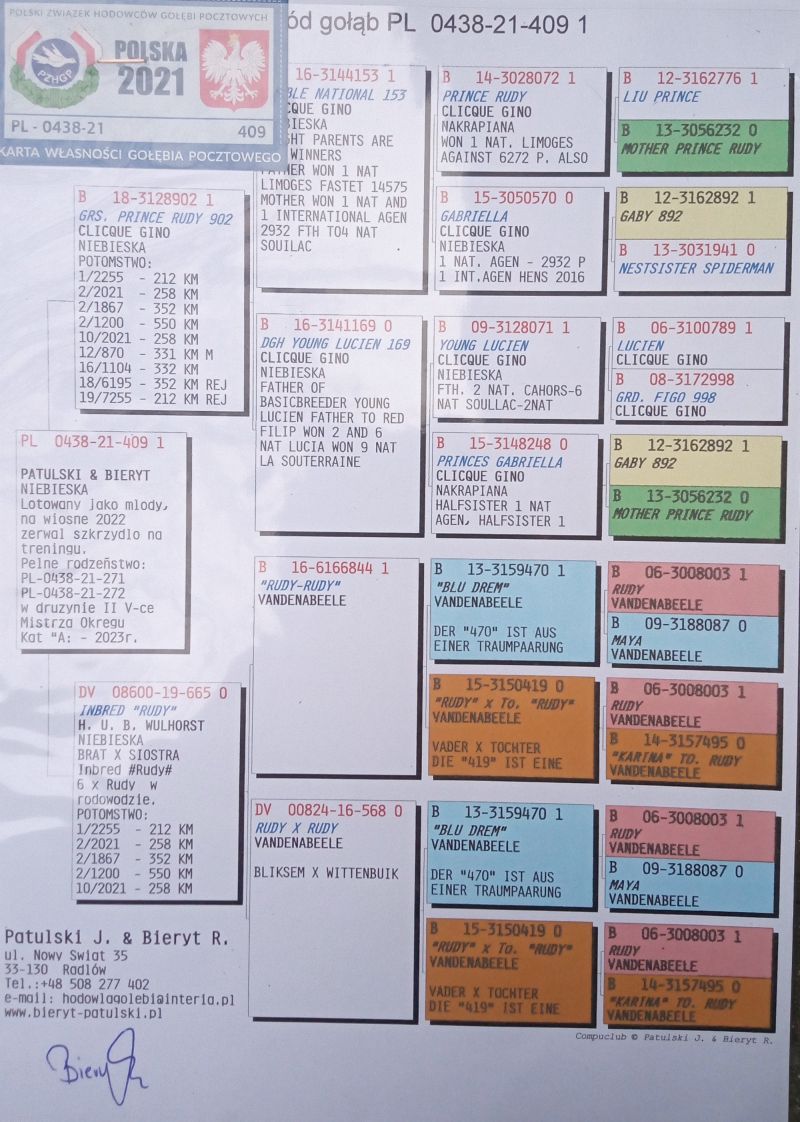 POLSKI ZWIĄZEK HODOWCÓW GOŁĘBI POCZTOWYCH
PZHGP
POLSKA
2021
PL - 0438-21
409
KARTA WŁASNOŚCI GOŁĘBIA POCZTOWEGO
ód gołąb PL 0438-21-409 1
PL 0438-21-409 1
PATULSKI & BIERYT
NIEBIESKA
Lotowany jako mlody,
na wiosne 2022
zerwal szkrzydlo na
treningu.
Pelne rodzeństwo:
PL-0438-21-271
PL-0438-21-272
w druzynie II V-ce
Mistrza Okregu
Kat "A: - 2023r.
B 18-3128902 1
GRS. PRINCE RUDY 902
CLICQUE GINO
NIEBIESKA
POTOMSTWO:
1/2255 - 212 KM
2/2021 - 258 KM
2/1867 - 352 KM
2/1200 - 550 KM
10/2021 - 258 KM
12/870 - 331 KM M
16/1104 - 332 KM
18/6195 - 352 KM REJ
19/7255 - 212 KM REJ
DV 08600-19-665 0
INBRED "RUDY"
H. U. B. WULHORST
NIEBIESKA
BRAT X SIOSTRA
Inbred #Rudy#
6 x Rudy w
rodowodzie.
POTOMSTWO:
1/2255 - 212 KM
2/2021 - 258 KM
2/1867 - 352 KM
2/1200 - 550 KM
10/2021 - 258 KM
16-3144153 1
BLE NATIONAL 153
CQUE GINO
IESKA
GHT PARENTS ARE
WINNERS
HER WON 1 NAT
LIMOGES FASTET 14575
MOTHER WON 1 NAT AND
1 INTERNATIONAL AGEN
2932 FTH TO4 NAT
SOUILAC
B 16-3141169 0
DGH YOUNG LUCIEN 169
CLICQUE GINO
NIEBIESKA
FATHER OF
BASICBREEDER YOUNG
LUCIEN FATHER TO RED
FILIP WON 2 AND 6
NAT LUCIA WON 9 NAT
LA SOUTERRAINE
B 16-6166844 1
"RUDY-RUDY"
VANDENABEELE
DV 00824-16-568 0
RUDY X RUDY
VANDENABEELE
BLIKSEM X WITTENBUIK
B 14-3028072 1
PRINCE RUDY
CLICQUE GINO
NAKRAPIANA
WON 1 NAT. LIMOGES
AGAINST 6272 P. ALSO
B 15-3050570 0
GABRIELLA
CLICQUE GINO
NIEBIESKA
1 NAT. AGEN - 2932 P
1 INT.AGEN HENS 2016
B 09-3128071 1
YOUNG LUCIEN
CLICQUE GINO
NIEBIESKA
FTH. 2 NAT. CAHORS-6
NAT SOULLAC-2NAT
B 15-3148248 0
PRINCES GABRIELLA
CLICQUE GINO
NAKRAPIANA
HALFSISTER 1 NAT
AGEN, HALFSISTER 1
B 13-3159470 1
"BLU DREM"
VANDENABEELE
DER "470" IST AUS
EINER TRAUMPAARUNG
B 15-3150419 0
"RUDY" x To. "RUDY"
VANDENABEELE
VADER X TOCHTER
DIE "419" IST EINE
B 13-3159470 1
"BLU DREM"
VANDENABEELE
DER "470" IST AUS
EINER TRAUMPAARUNG
B 15-3150419 0
"RUDY" x To. "RUDY"
VANDENABEELE
VADER X TOCHTER
DIE "419" IST EINE
B 12-3162776 1
LIU PRINCE
B 13-3056232 0
MOTHER PRINCE RUDY
B 12-3162892 1
GABY 892
B 13-3031941 0
NESTSISTER SPIDERMAN
B 06-3100789 1
LUCIEN
CLICQUE GINO
B 08-3172998
GRD. FIGO 998
CLICQUE GINO
B 12-3162892 1
GABY 892
B 13-3056232 0
MOTHER PRINCE RUDY
B 06-3008003 1
RUDY
VANDENABEELE
B 09-3188087 0
MAYA
VANDENABEELE
B 06-3008003 1
RUDY
VANDENABEELE
B 14-3157495 0
"KARINA" TO. RUDY
VANDENABEELE
B 06-3008003 1
RUDY
VANDENABEELE
B 09-3188087 0
MAYA
VANDENABEELE
B 06-3008003 1
RUDY
VANDENABEELE
B 14-3157495 0
"KARINA" TO. RUDY
VANDENABEELE
Patulski J. & Bieryt R.
ul. Nowy Swiat 35
33-130 Radlów
Tel.:+48 508 277 402
e-mail: hodowlagolebi@interia.pl
www.bieryt-patulski.pl
Compuclub © Patulski J. & Bieryt R.